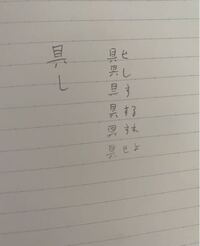 具し
具せ
具し
具す
具する
具すれ
具せよ